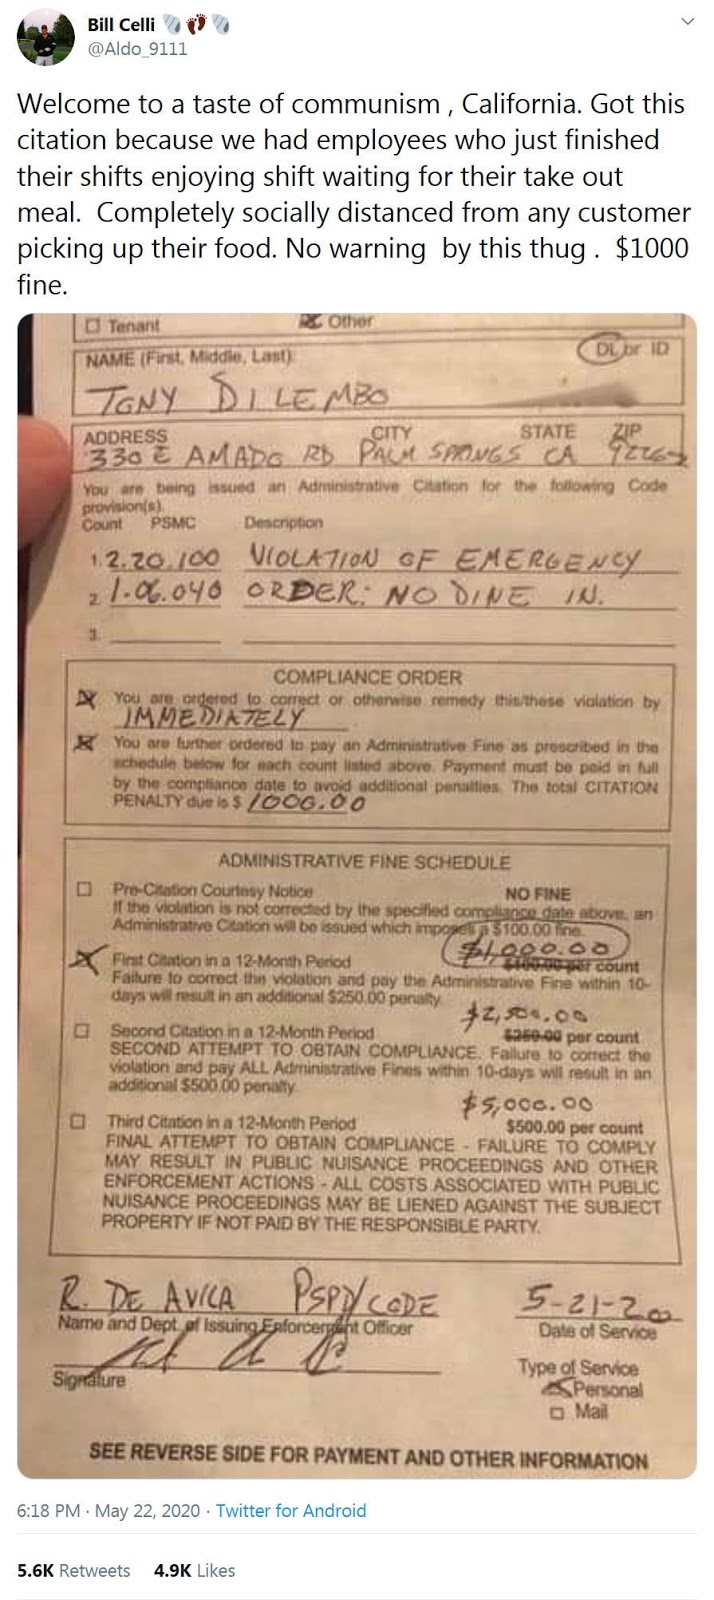 Bill Celli
@Aldo_9111
Welcome to a taste of communism , California. Got this
citation because we had employees who just finished
their shifts enjoying shift waiting for their take out
meal.  Completely socially distanced from any customer
picking up their food. No warning  by this thug .  $1000
fine.
Tenant Other
NAME (First, Middle, Last) DL or ID
TONY DILEMBO
ADDRESS CITY STATE ZIP
330 E AMADO RD PALM SPRINGS CA
You are being issued an Administrative Citation for the following Code
provision(s).
Count PSMC Description
1. 2.20.100 VIOLATION OF EMERGENCY
2. 1.06.040 ORDER: NO DINE IN.
3.
COMPLIANCE ORDER
You are ordered to correct or otherwise remedy this/these violation by
IMMEDIATELY
You are further ordered to pay an Administrative Fine as prescribed in the
schedule below for each count listed above. Payment must be paid in full
by the compliance date to avoid additional penalties. The total CITATION
PENALTY due is $ 1000.00
ADMINISTRATIVE FINE SCHEDULE
Pre-Citation Courtesy Notice NO FINE
If the violation is not corrected by the specified compliance date above, an
Administrative Citation will be issued which imposes a $100.00 fine.
$1,000.00
First Citation in a 12-Month Period $100.00 per count
Failure to correct the violation and pay the Administrative Fine within 10-
days will result in an additional $250.00 penalty.
$2,500.00
Second Citation in a 12-Month Period $250.00 per count
SECOND ATTEMPT TO OBTAIN COMPLIANCE. Failure to correct the
violation and pay ALL Administrative Fines within 10-days will result in an
additional $500.00 penalty.
$5,000.00
Third Citation in a 12-Month Period $500.00 per count
FINAL ATTEMPT TO OBTAIN COMPLIANCE - FAILURE TO COMPLY
MAY RESULT IN PUBLIC NUISANCE PROCEEDINGS AND OTHER
ENFORCEMENT ACTIONS - ALL COSTS ASSOCIATED WITH PUBLIC
NUISANCE PROCEEDINGS MAY BE LIENED AGAINST THE SUBJECT
PROPERTY IF NOT PAID BY THE RESPONSIBLE PARTY.
R. DE AVILA PSPD/CODE 5-21-20
Name and Dept. of Issuing Enforcement Officer Date of Service
Signature Type of Service
Personal
Mail
SEE REVERSE SIDE FOR PAYMENT AND OTHER INFORMATION
6:18 PM · May 22, 2020 · Twitter for Android
5.6K Retweets 4.9K Likes